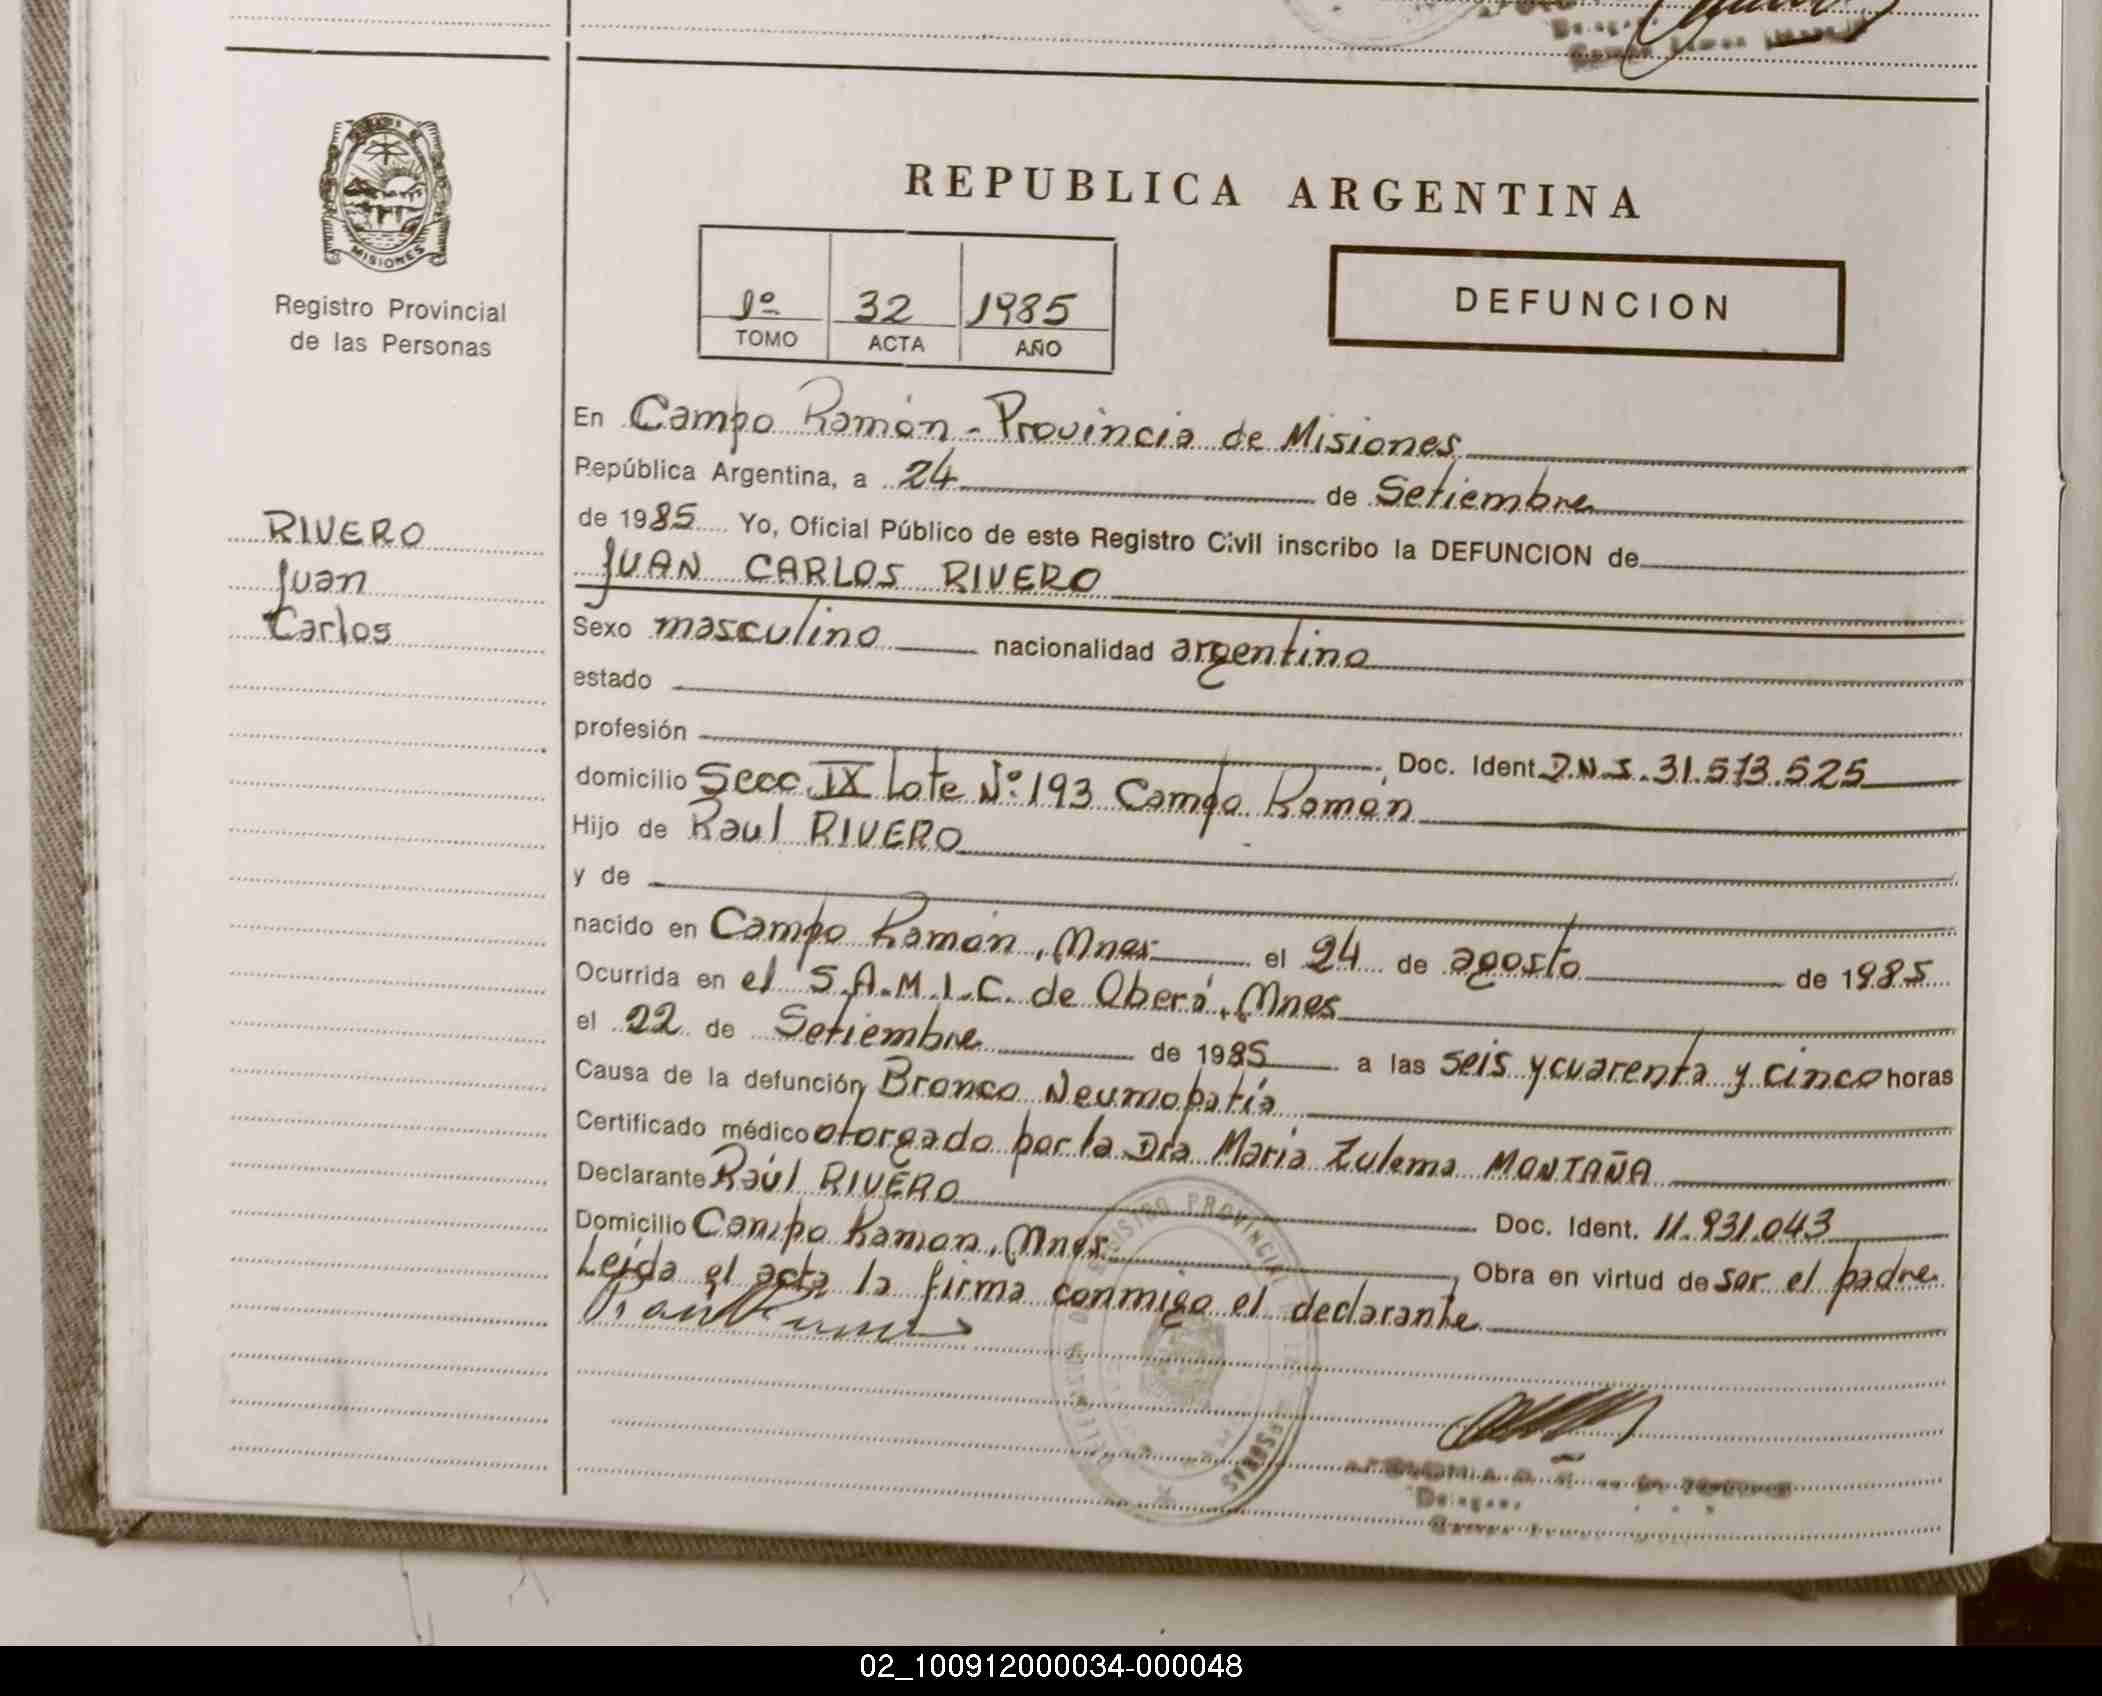 MISIONES
Registro Provincial
de las Personas
RIVERO
Juan
Carlos
REPUBLICA ARGENTINA
1º 32 1985
TOMO ACTA AÑO
DEFUNCION
En Campo Ramón - Provincia de Misiones
República Argentina, a 24 de Setiembre
de 1985 Yo, Oficial Público de este Registro Civil inscribo la DEFUNCION de
JUAN CARLOS RIVERO
Sexo masculino nacionalidad argentino
estado
profesión , Doc. Ident. D.N.I. 31.513.525
domicilio Secc. IX Lote Nº 193 Campo Ramón
Hijo de Raul RIVERO
y de
nacido en Campo Ramón, Mnes el 24 de agosto de 1985
Ocurrida en el S.A.M.I.C. de Oberá, Mnes
el 22 de Setiembre de 1985 a las seis y cuarenta y cinco horas
Causa de la defunción Bronco Neumopatía
Certificado médico otorgado por la Dra Maria Zulema MONTAÑA
Declarante Raúl RIVERO Doc. Ident. 11.931.043
Domicilio Campo Ramon, Mnes , Obra en virtud de ser el padre
Leída el acta la firma conmigo el declarante
REGISTRO PROVINCIAL PERSONAS
02_100912000034-000048